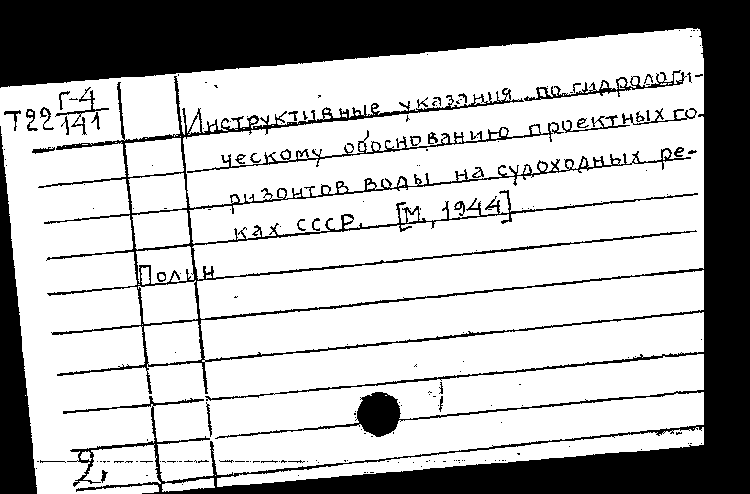 Т22 Г-4/141
Инструктивные указания по гидрологи-
ческому обоснованию проектных го-
ризонтов воды на судоходных ре-
ках СССР. [М., 1944]
Полин
2.